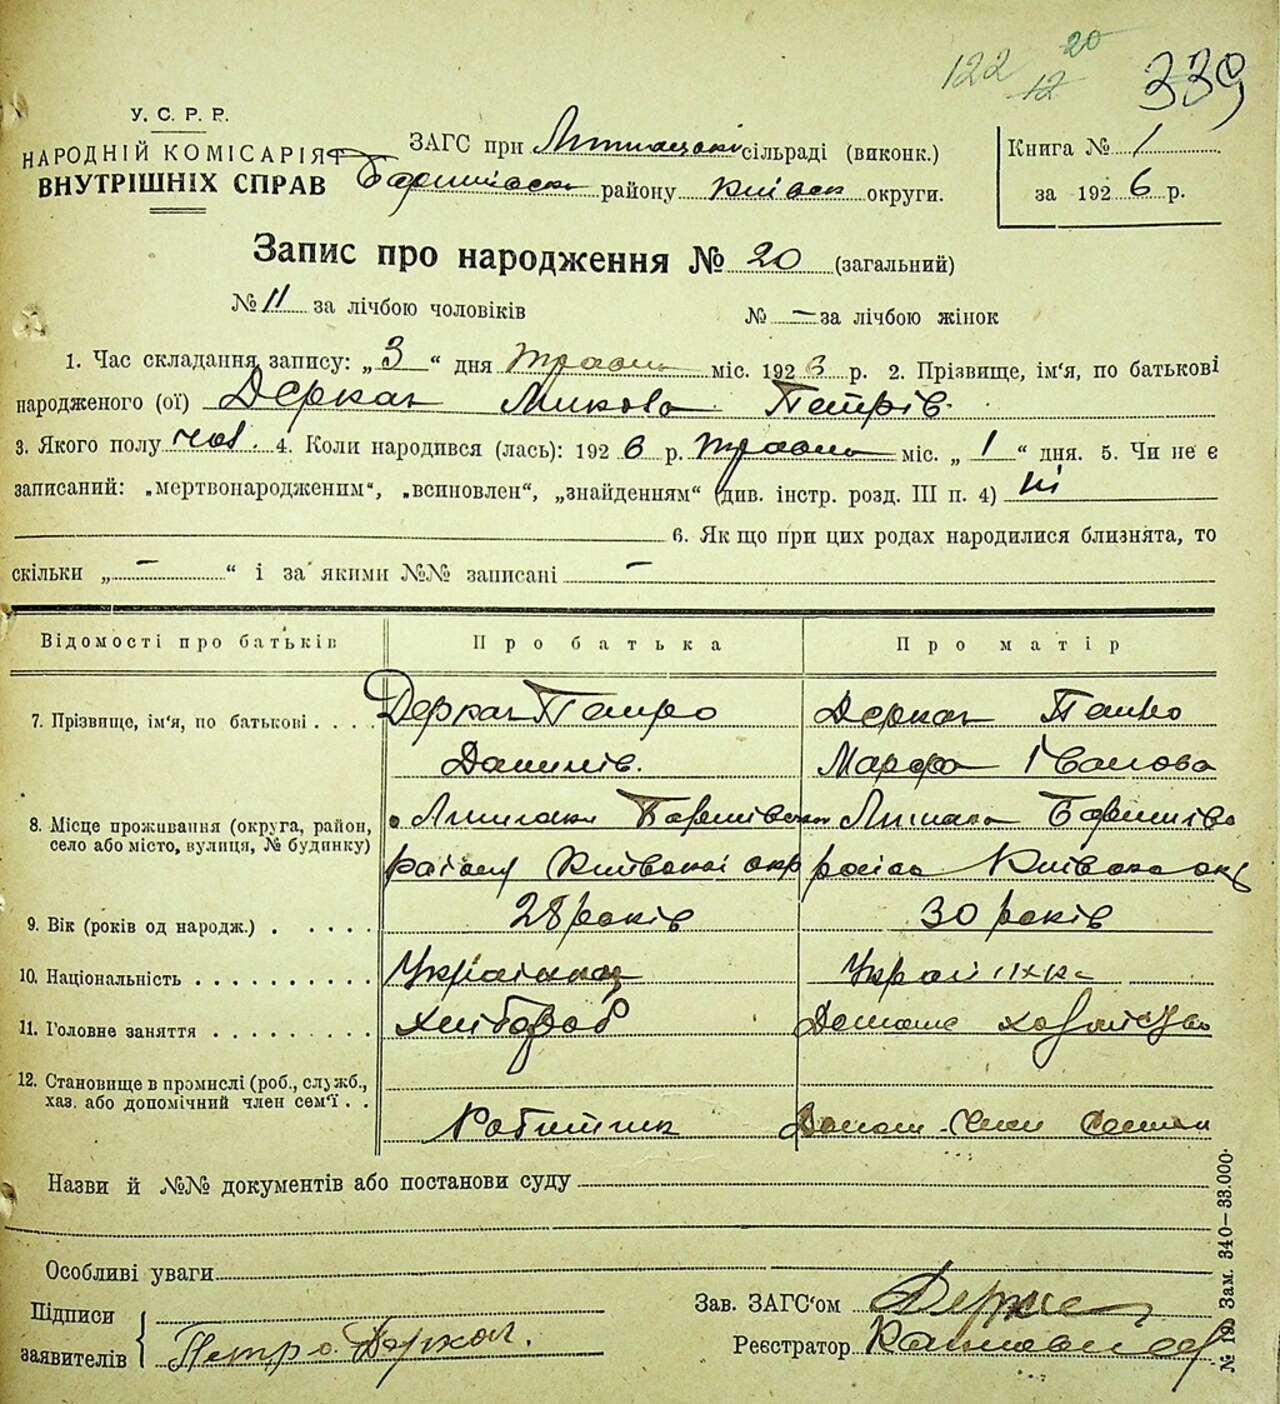 122 20
12 339
У. С. Р. Р.
НАРОДНІЙ КОМІСАРІЯТ
ВНУТРІШНІХ СПРАВ
ЗАГС при сільраді (виконк.)
району округи.
Книга № 1
за 1926 р.
Запис про народження № 20 (загальний)
№ 11 за лічбою чоловіків № — за лічбою жінок
1. Час складання запису: „3“ дня травня міс. 1926 р. 2. Прізвище, ім'я, по батькові
народженого (ої) Деркач Микола Петрів.
3. Якого полу чол. 4. Коли народився (лась): 1926 р. травня міс. „1“ дня. 5. Чи не є
записаний: „мертвонародженим“, „всиновлен“, „знайденням“ (див. інстр. розд. III п. 4) ні
6. Як що при цих родах народилися близнята, то
скільки „—“ і за якими №№ записані —
Відомості про батьків Про батька Про матір
7. Прізвище, ім'я, по батькові . . . . Деркач Петро Деркач
Данилів. Марфа Іванова
8. Місце проживання (округа, район,
село або місто, вулиця, № будинку)
району Київської окр
9. Вік (років од народж.) . . . . . 28 років 30 років
10. Національність . . . . . . . . . . Українец Українка
11. Головне заняття . . . . . . . . . Хлібороб Домашнє хазяйство
12. Становище в промислі (роб., служб.,
хаз. або допомічний член сем'ї . .
Робітник
Назви й №№ документів або постанови суду
Особливі уваги
Підписи
заявителів
Петро Деркач.
Зав. ЗАГС'ом
Реєстратор
№ 12 Зам. 340—33.000.